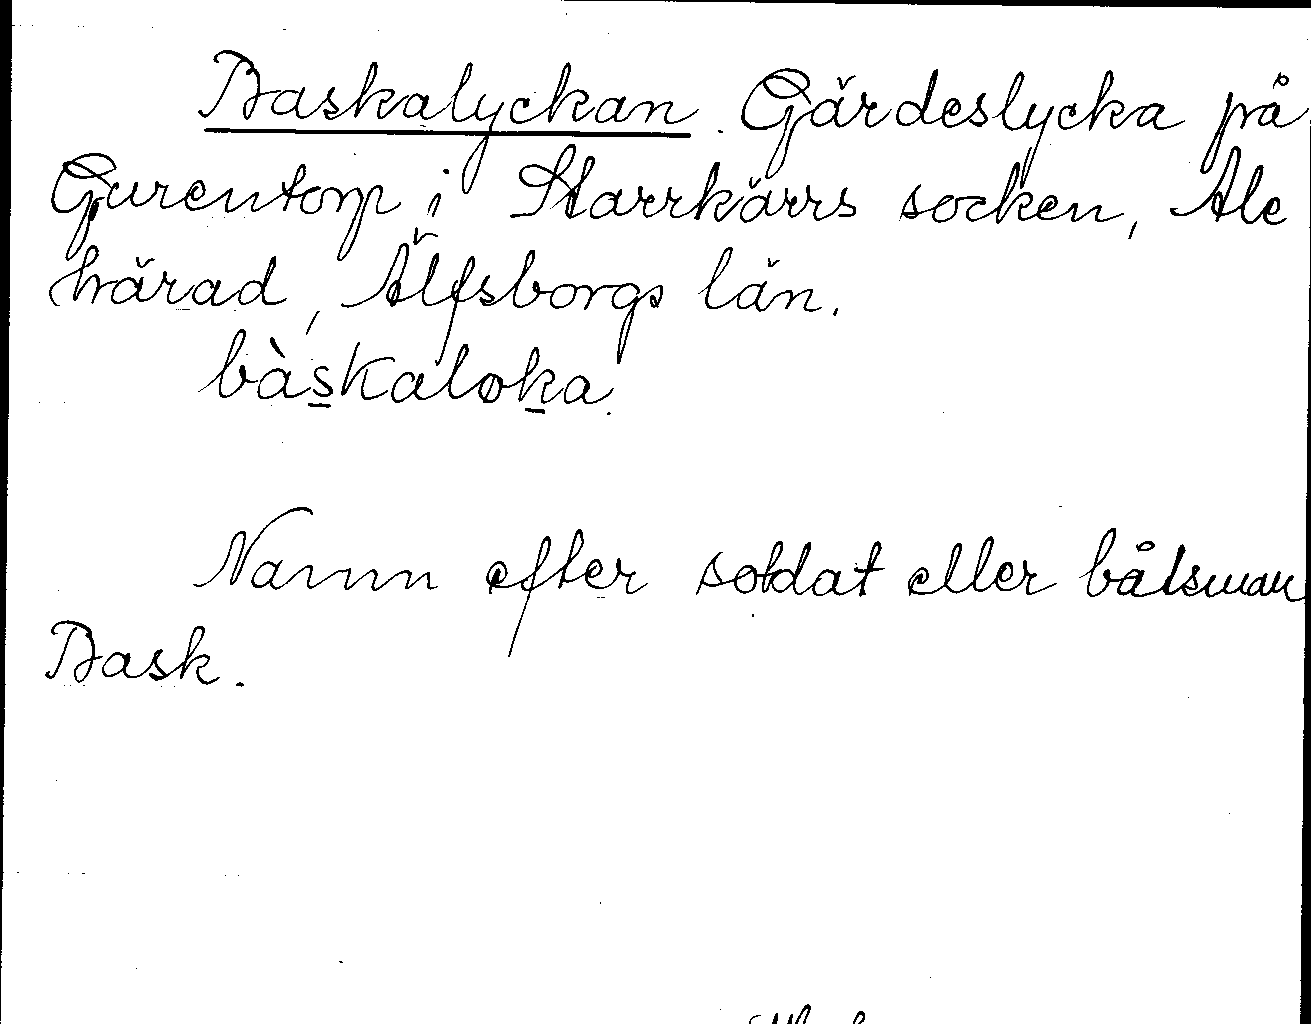 Baskalyckan. Gärdeslycka på
Gurentorp i Starrkärrs socken, Ale
härad, Älfsborgs län.
bàskaloka.
Namn efter soldat eller båtsman
Bask.